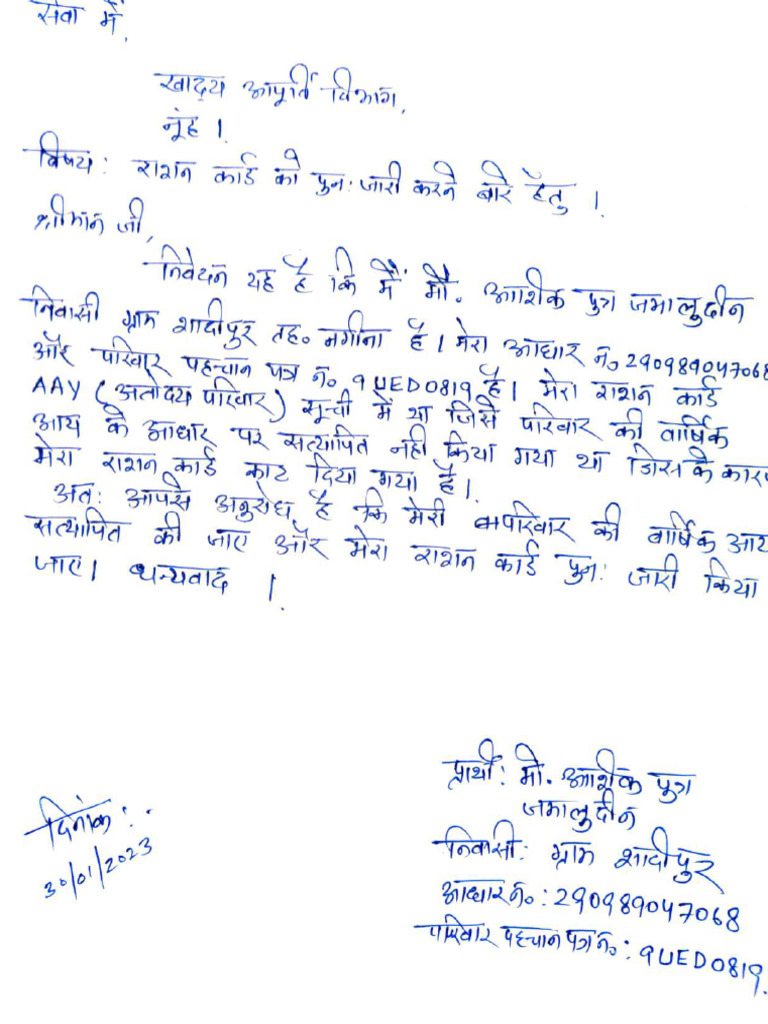 सेवा में,
खाद्य आपूर्ति विभाग,
नूंह ।
विषय: राशन कार्ड को पुन: जारी करने बारे हेतु ।
श्रीमान जी,
निवेदन यह है कि मैं मौ. आशिक पुत्र जमालुदीन
निवासी ग्राम शादीपुर तह० नगीना है। मेरा आधार नं० 290989047068
और परिवार पहचान पत्र नं. 9UED0819 है। मेरा राशन कार्ड
AAY (अतोदय परिवार) सूची में था जिसे परिवार की वार्षिक
आय के आधार पर सत्यापित नही किया गया था जिस के कारण
मेरा राशन कार्ड काट दिया गया है।
अत: आपसे अनुरोध है कि मेरी परिवार की वार्षिक आय
सत्यापित की जाए और मेरा राशन कार्ड पुन: जारी किया
जाए। धन्यवाद ।
प्रार्थी: मो. आशिक पुत्र
जमालुदीन
निवासी: ग्राम शादीपुर
आधार नं० : 290989047068
परिवार पहचान पत्र नं० : 9UED0819.
दिनांक:
30/01/2023